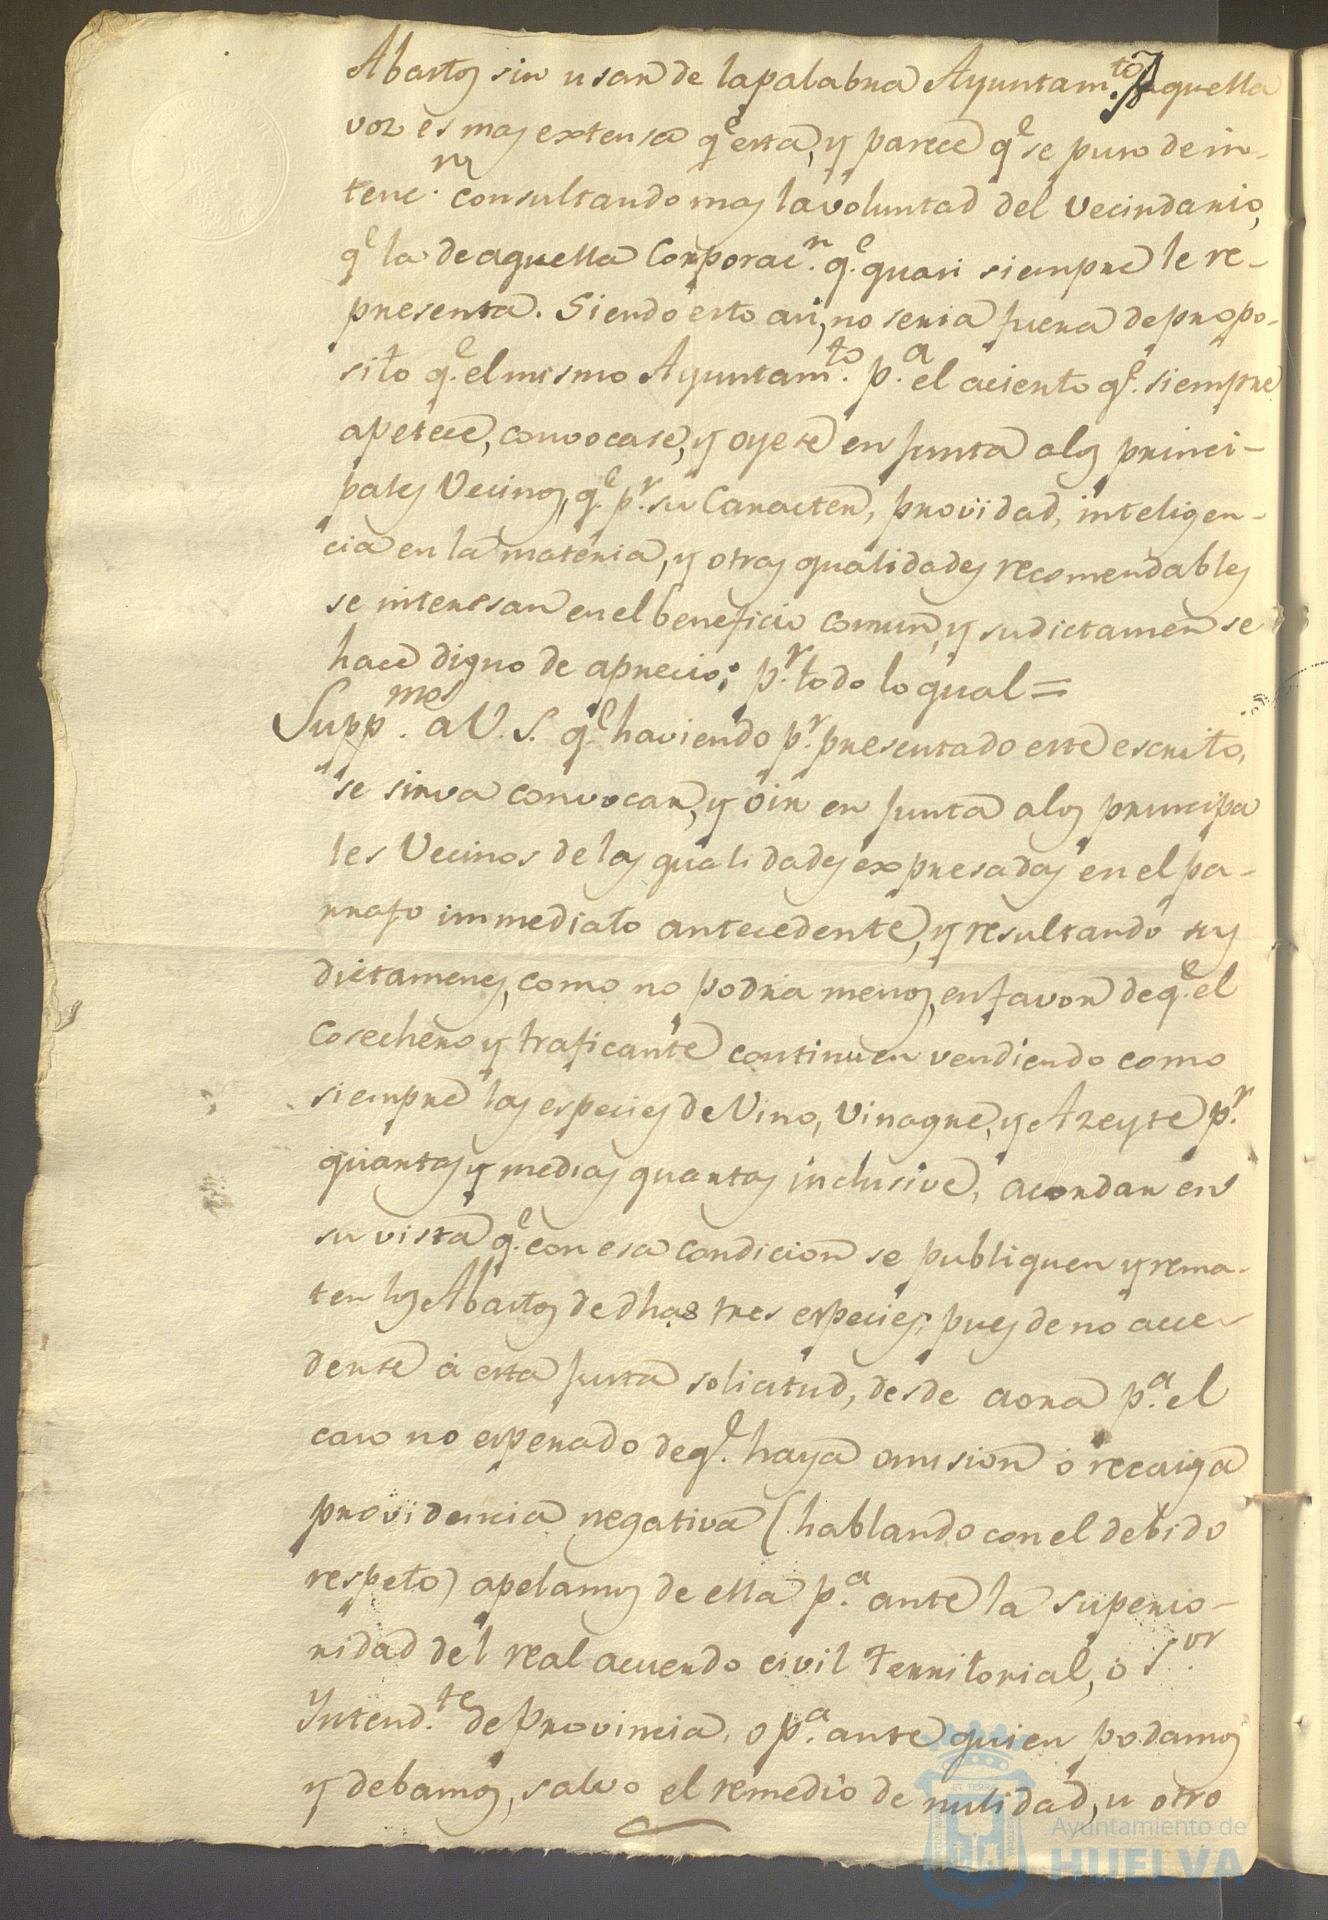 Abastos sin usar de la palabra Ayuntam.to y aquella
voz es mas extensa q.e esta, y parece q.e se puso de in-
tenc.n consultando mas la voluntad del Vecindario,
q.e la de aquella Corporac.n q.e quasi siempre le re-
presenta. Siendo esto asi, no seria fuera de propo-
sito q.e el mismo Ayuntam.to p.a el aciento q.e siempre
apetece, convocase, y oyese en Junta a los princi-
pales Vecinos, q.e p.r su Caracter, providad, inteligen-
cia en la materia, y otras qualidades recomendables
se interesan en el beneficio comun, y su dictamen se
hace digno de aprecio; p.r todo lo qual =
Supp.mos a V. S. q.e haviendo p.r presentado este escrito,
se sirva convocar, y oir en Junta a los principa
les Vecinos de las qualidades expresadas en el pa-
rrafo immediato antecedente, y resultando sus
dictamenes, como no podria menos, en favor de q.e el
Cosechero y traficante continuen vendiendo como
siempre las especies de Vino, Vinagre, y Azeyte p.r
quartas y medias quartas inclusive, acordar en
su vista q.e con esa condicion se publiquen y rema-
ten los Abastos de dhas tres especies; pues de no acce-
derse à esta justa solicitud, desde aora p.a el
caso no esperado de q.e haya omision ò recaiga
providencia negativa (hablando con el debido
respeto) apelamos de ella p.a ante la superio-
ridad del real acuerdo civil territorial, ò S.or
Yntend.te de Provincia, o p.a ante quien podamos
y debamos, salvo el remedio de nulidad, u otro
Ayuntamiento de
HUELVA